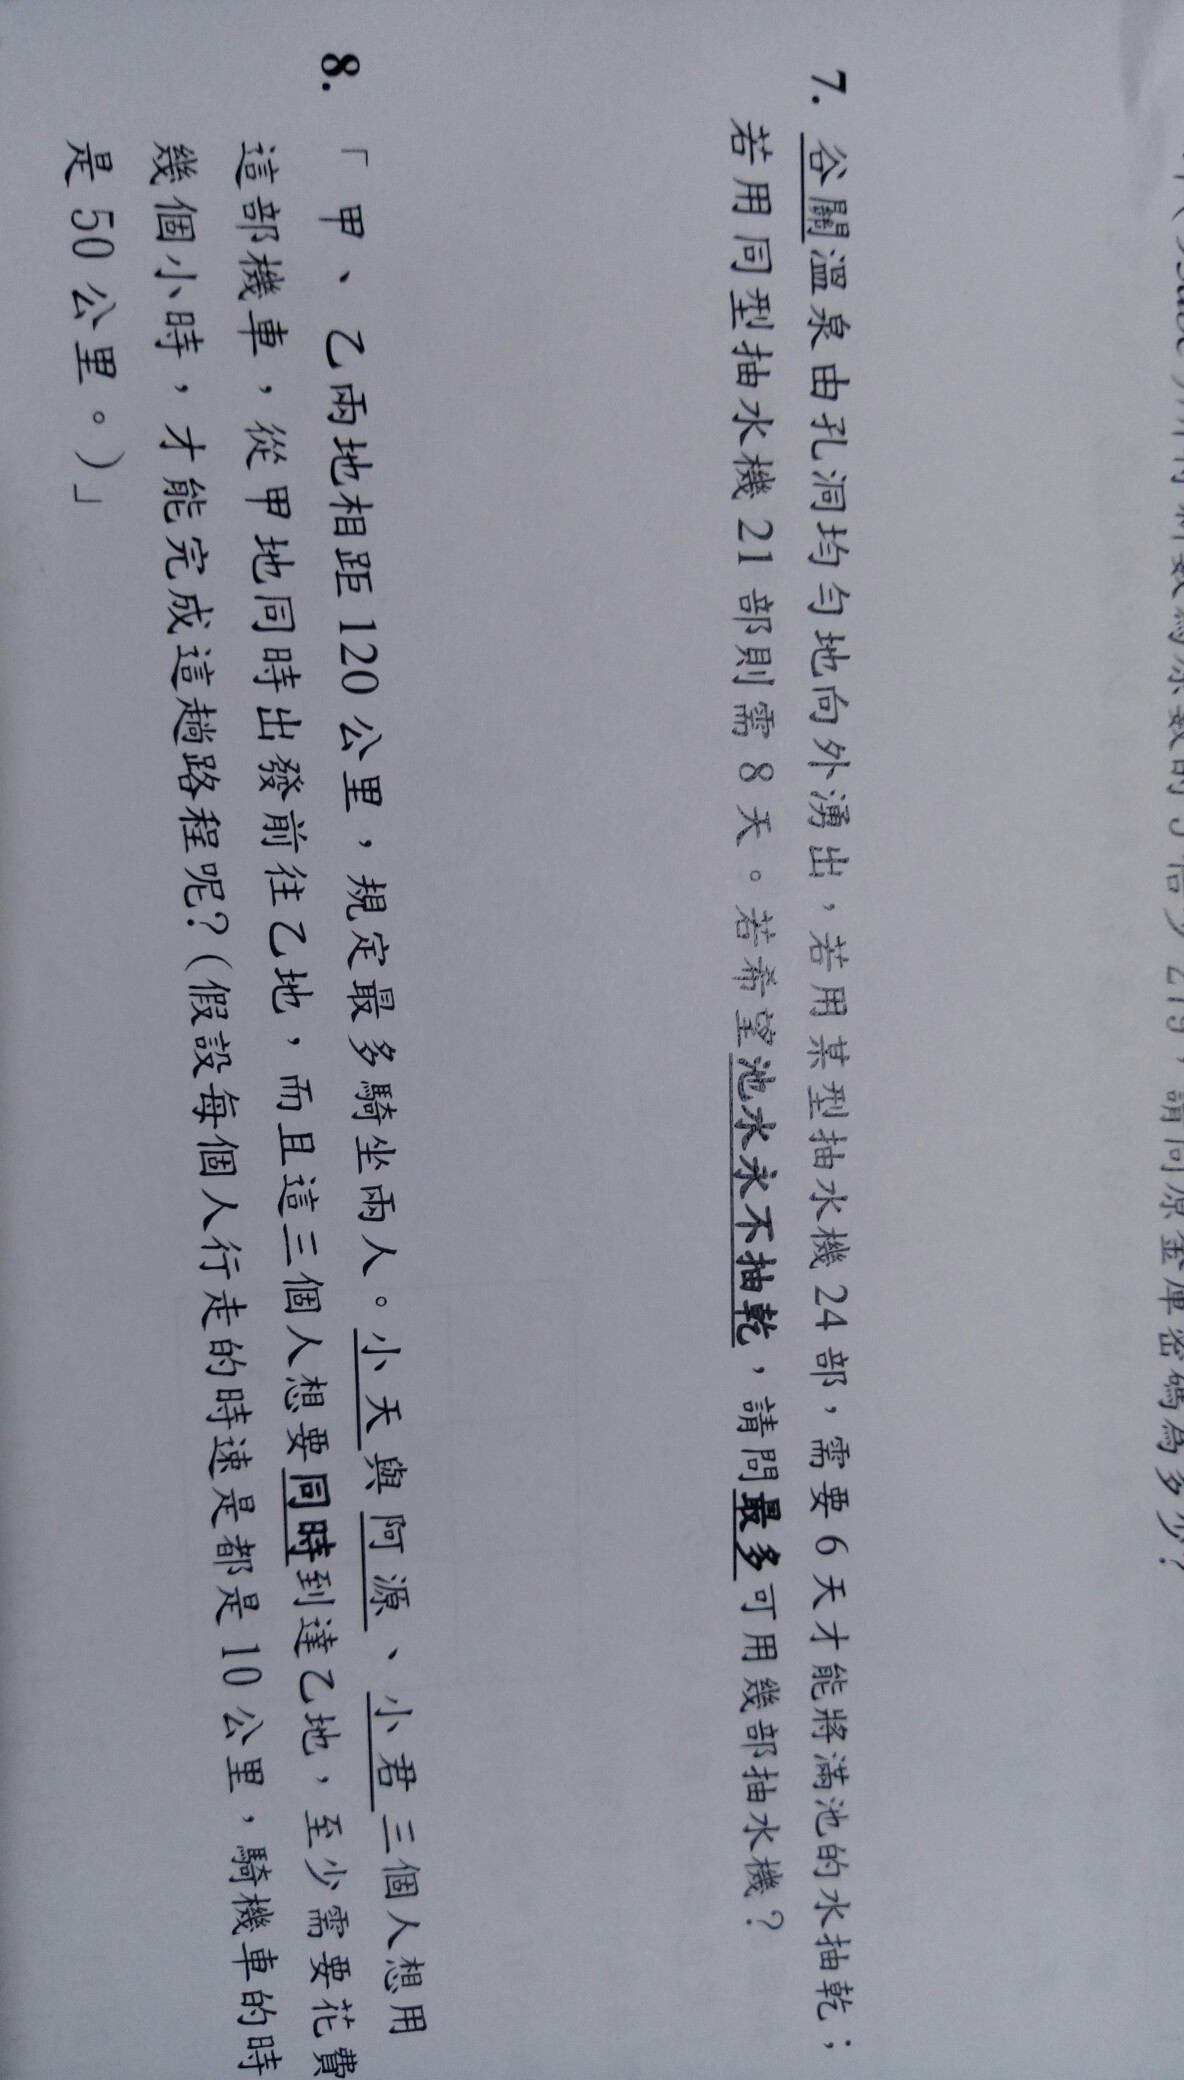 數的3倍少219，請問原金庫密碼為多少？
7. 谷關溫泉由孔洞均勻地向外湧出，若用某型抽水機24部，需要6天才能將滿池的水抽乾；
若用同型抽水機21部則需8天。若希望池水永不抽乾，請問最多可用幾部抽水機？
8. 「甲、乙兩地相距120公里，規定最多騎坐兩人。小天與阿源、小君三個人想用
這部機車，從甲地同時出發前往乙地，而且這三個人想要同時到達乙地，至少需要花費
幾個小時，才能完成這趟路程呢？(假設每個人行走的時速是都是10公里，騎機車的時
是50公里。)」